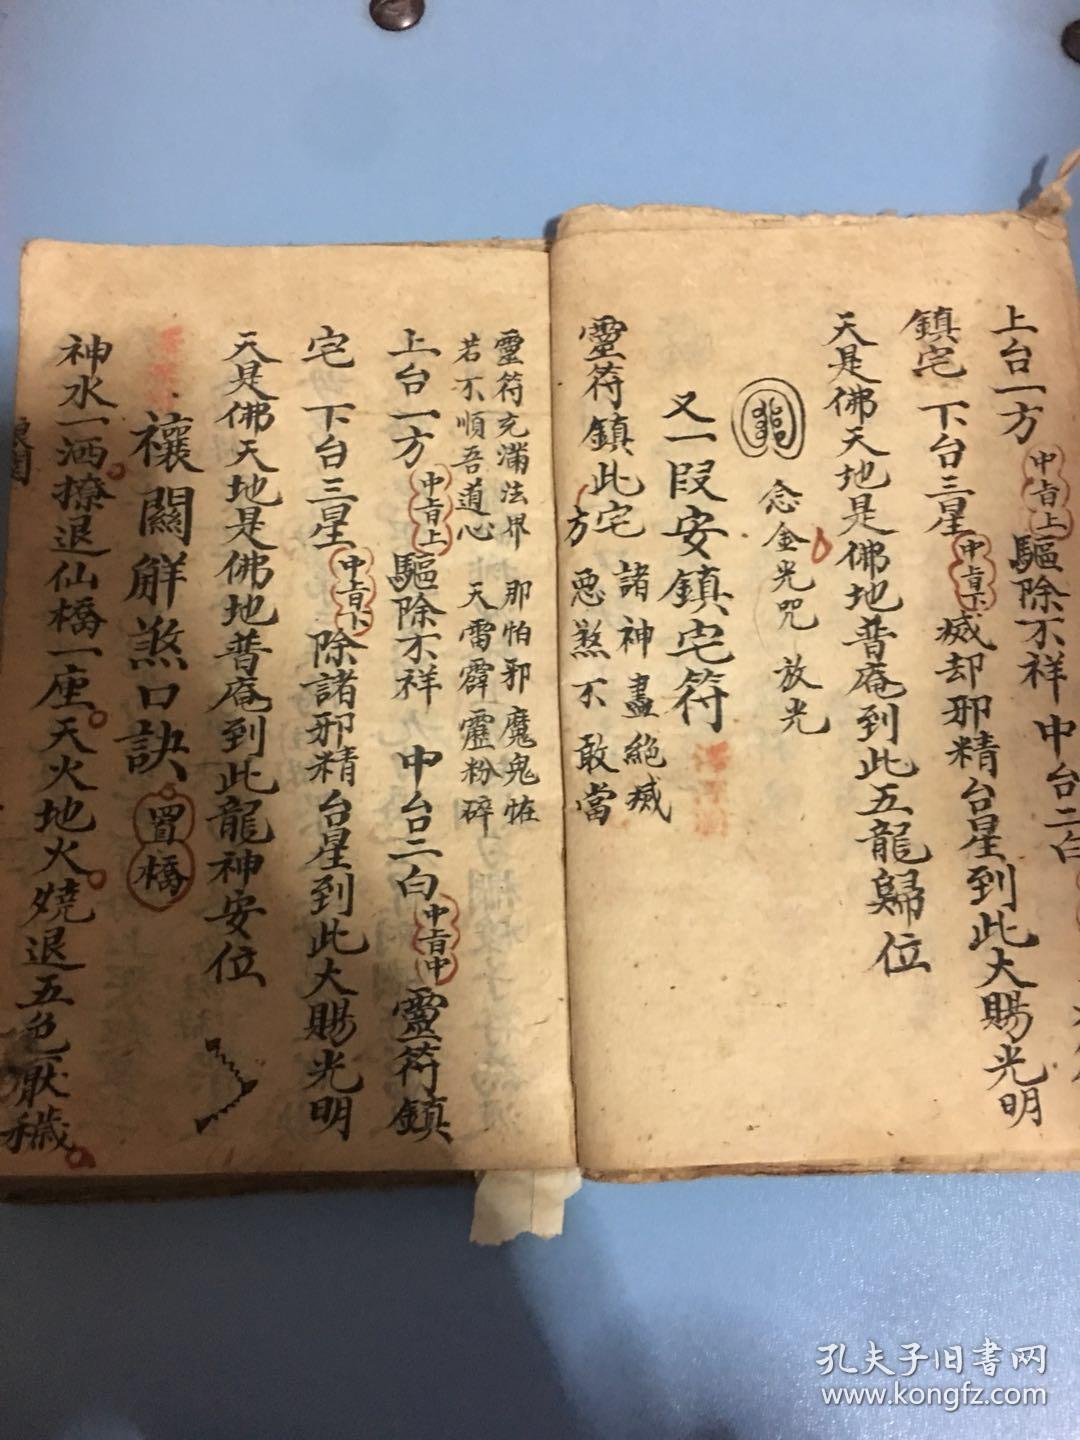 上台一方中旨上驅除不祥中台二白
鎮宅下台三星中旨下滅却邪精台星到此大賜光明
天是佛天地是佛地普庵到此五龍歸位
念金光咒放光
又一段安鎮宅符
靈符鎮此宅諸神盡絕滅
方惡煞不敢當
靈符充滿法界那怕邪魔鬼怪
若不順吾道心天雷霹靂粉碎
上台一方中旨上驅除不祥中台二白中旨中靈符鎮
宅下台三星中旨下除諸邪精台星到此大賜光明
天是佛天地是佛地普庵到此龍神安位
禳關解煞口訣置橋
神水一洒撩退仙橋一座天火地火燒退五色厭穢
孔夫子旧书网
www.kongfz.com